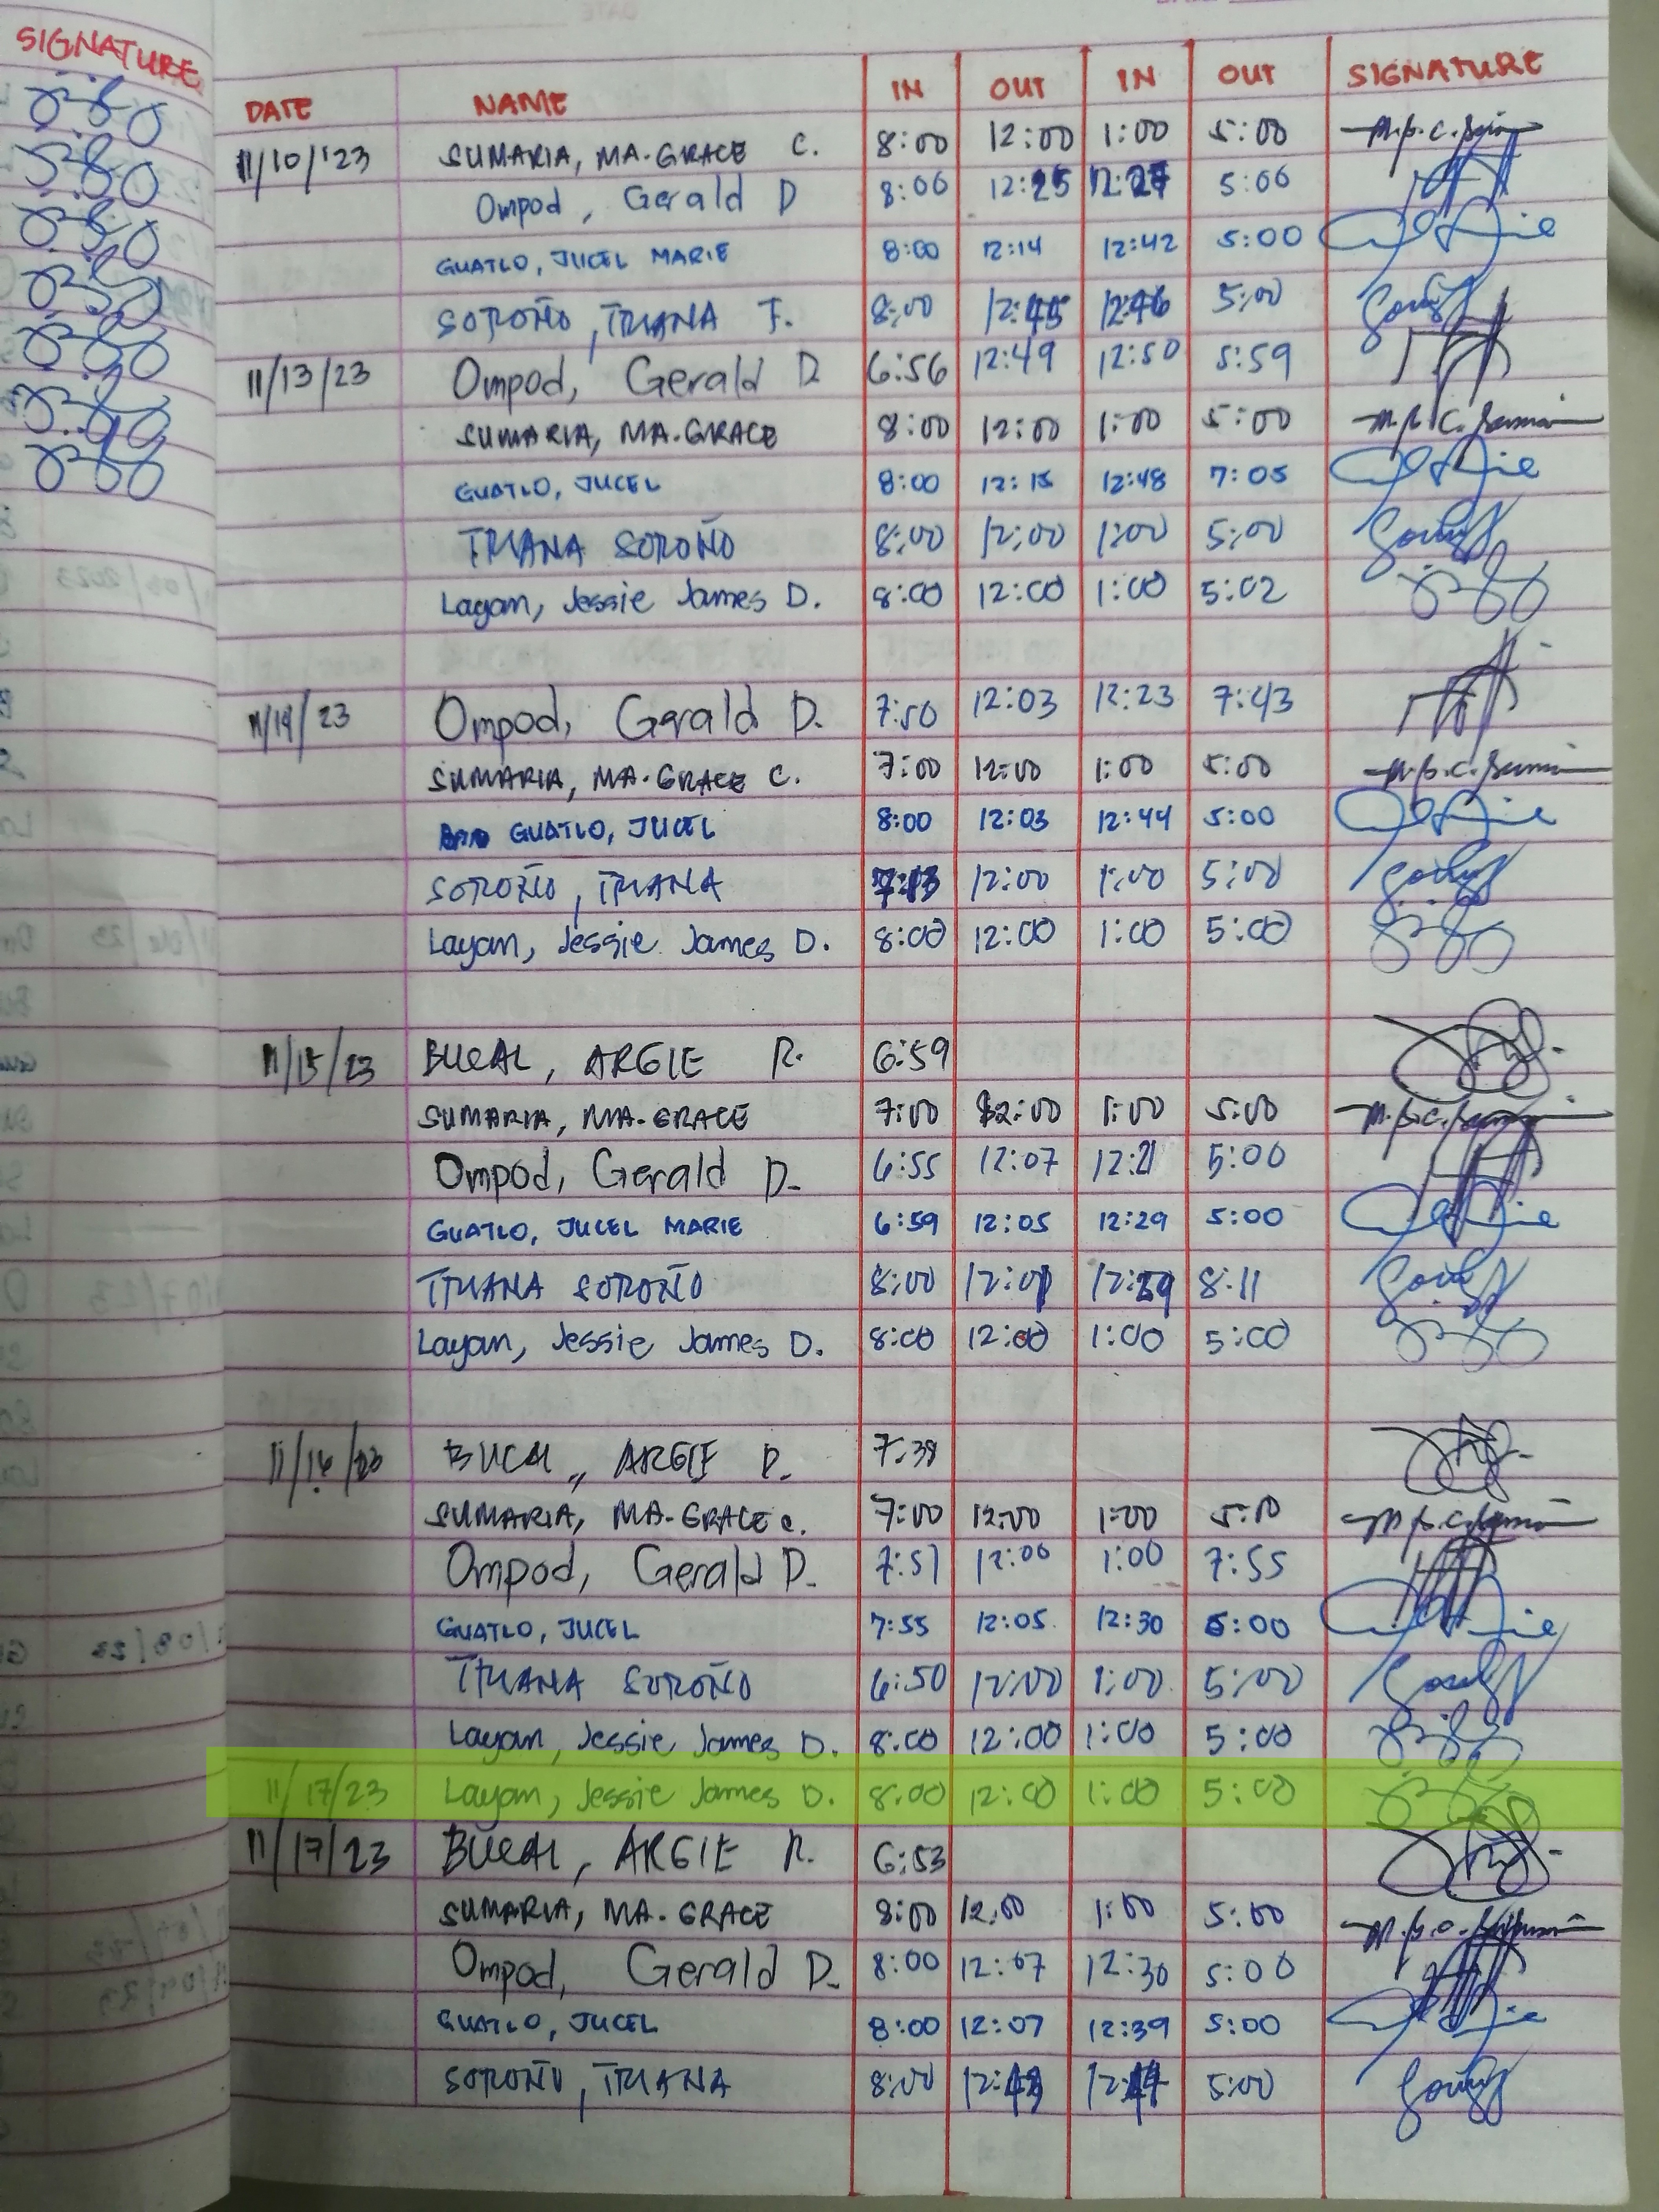 SIGNATURE
DATE NAME IN OUT IN OUT SIGNATURE
11/10/'23 SUMARIA, MA. GRACE C. 8:00 12:00 1:00 5:00
Ompod, Gerald D 8:06 12:25 12:27 5:06
GUATLO, JUCEL MARIE 8:00 12:14 12:42 5:00
SOROÑO, TRIANA F. 8:00 12:45 12:46 5:00
11/13/23 Ompod, Gerald D 6:56 12:49 12:50 5:59
SUMARIA, MA. GRACE 8:00 12:00 1:00 5:00
GUATLO, JUCEL 8:00 12:15 12:48 7:05
TRIANA SOROÑO 8:00 12:00 1:00 5:00
Layan, Jessie James D. 8:00 12:00 1:00 5:02
11/14/23 Ompod, Gerald D. 7:50 12:03 12:23 7:43
SUMARIA, MA. GRACE C. 7:00 12:00 1:00 5:00
GUATLO, JUCEL 8:00 12:03 12:44 5:00
SOROÑO, TRIANA 12:00 1:00 5:00
Layan, Jessie James D. 8:00 12:00 1:00 5:00
11/15/23 BUCAL, ARGIE R. 6:59
SUMARIA, MA. GRACE 7:00 12:00 1:00 5:00
Ompod, Gerald D. 6:55 12:07 12:21 5:00
GUATLO, JUCEL MARIE 6:59 12:05 12:29 5:00
TRIANA SOROÑO 8:00 12:01 8:11
Layan, Jessie James D. 8:00 12:00 1:00 5:00
11/16/23 BUCAL, ARGIE R. 7:38
SUMARIA, MA. GRACE C. 7:00 12:00 1:00 5:00
Ompod, Gerald D. 7:51 12:06 1:00 7:55
GUATLO, JUCEL 7:55 12:05 12:30 5:00
TRIANA SOROÑO 6:50 12:00 1:00 5:00
Layan, Jessie James D. 8:00 12:00 1:00 5:00
11/17/23 Layan, Jessie James D. 8:00 12:00 1:00 5:00
11/17/23 BUCAL, ARGIE R. 6:53
SUMARIA, MA. GRACE 8:00 12:00 1:00 5:00
Ompod, Gerald D. 8:00 12:07 12:30 5:00
GUATLO, JUCEL 8:00 12:07 12:39 5:00
SOROÑO, TRIANA 8:00 12:43 12:44 5:00